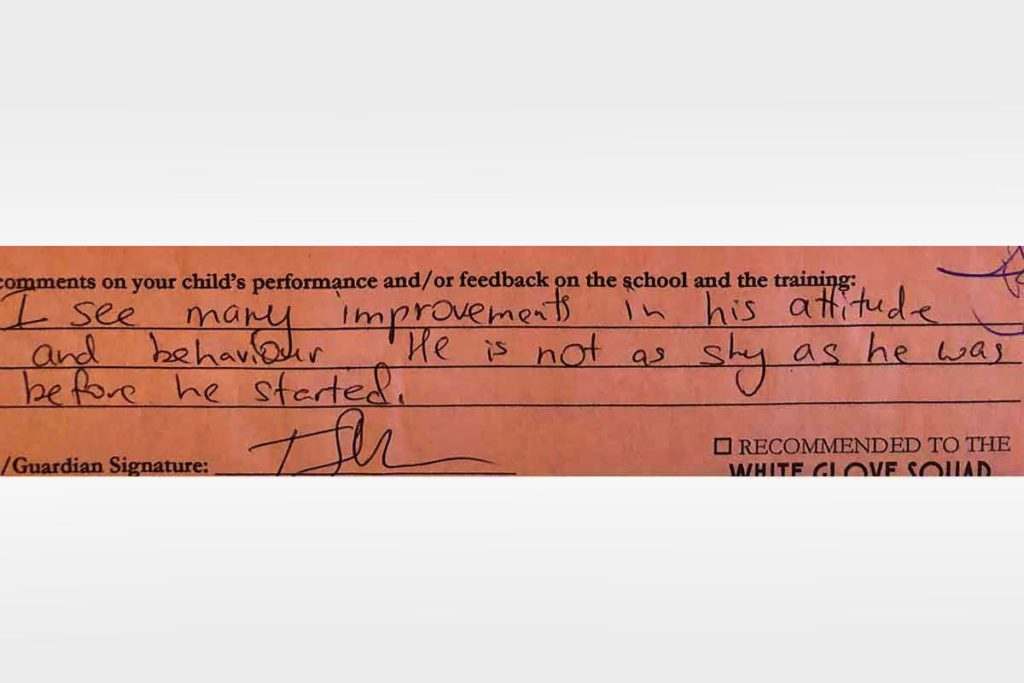 comments on your child's performance and/or feedback on the school and the training:
I see many improvements in his attitude
and behaviour He is not as shy as he was
before he started.
/Guardian Signature:
☐ RECOMMENDED TO THE
WHITE GLOVE SQUAD